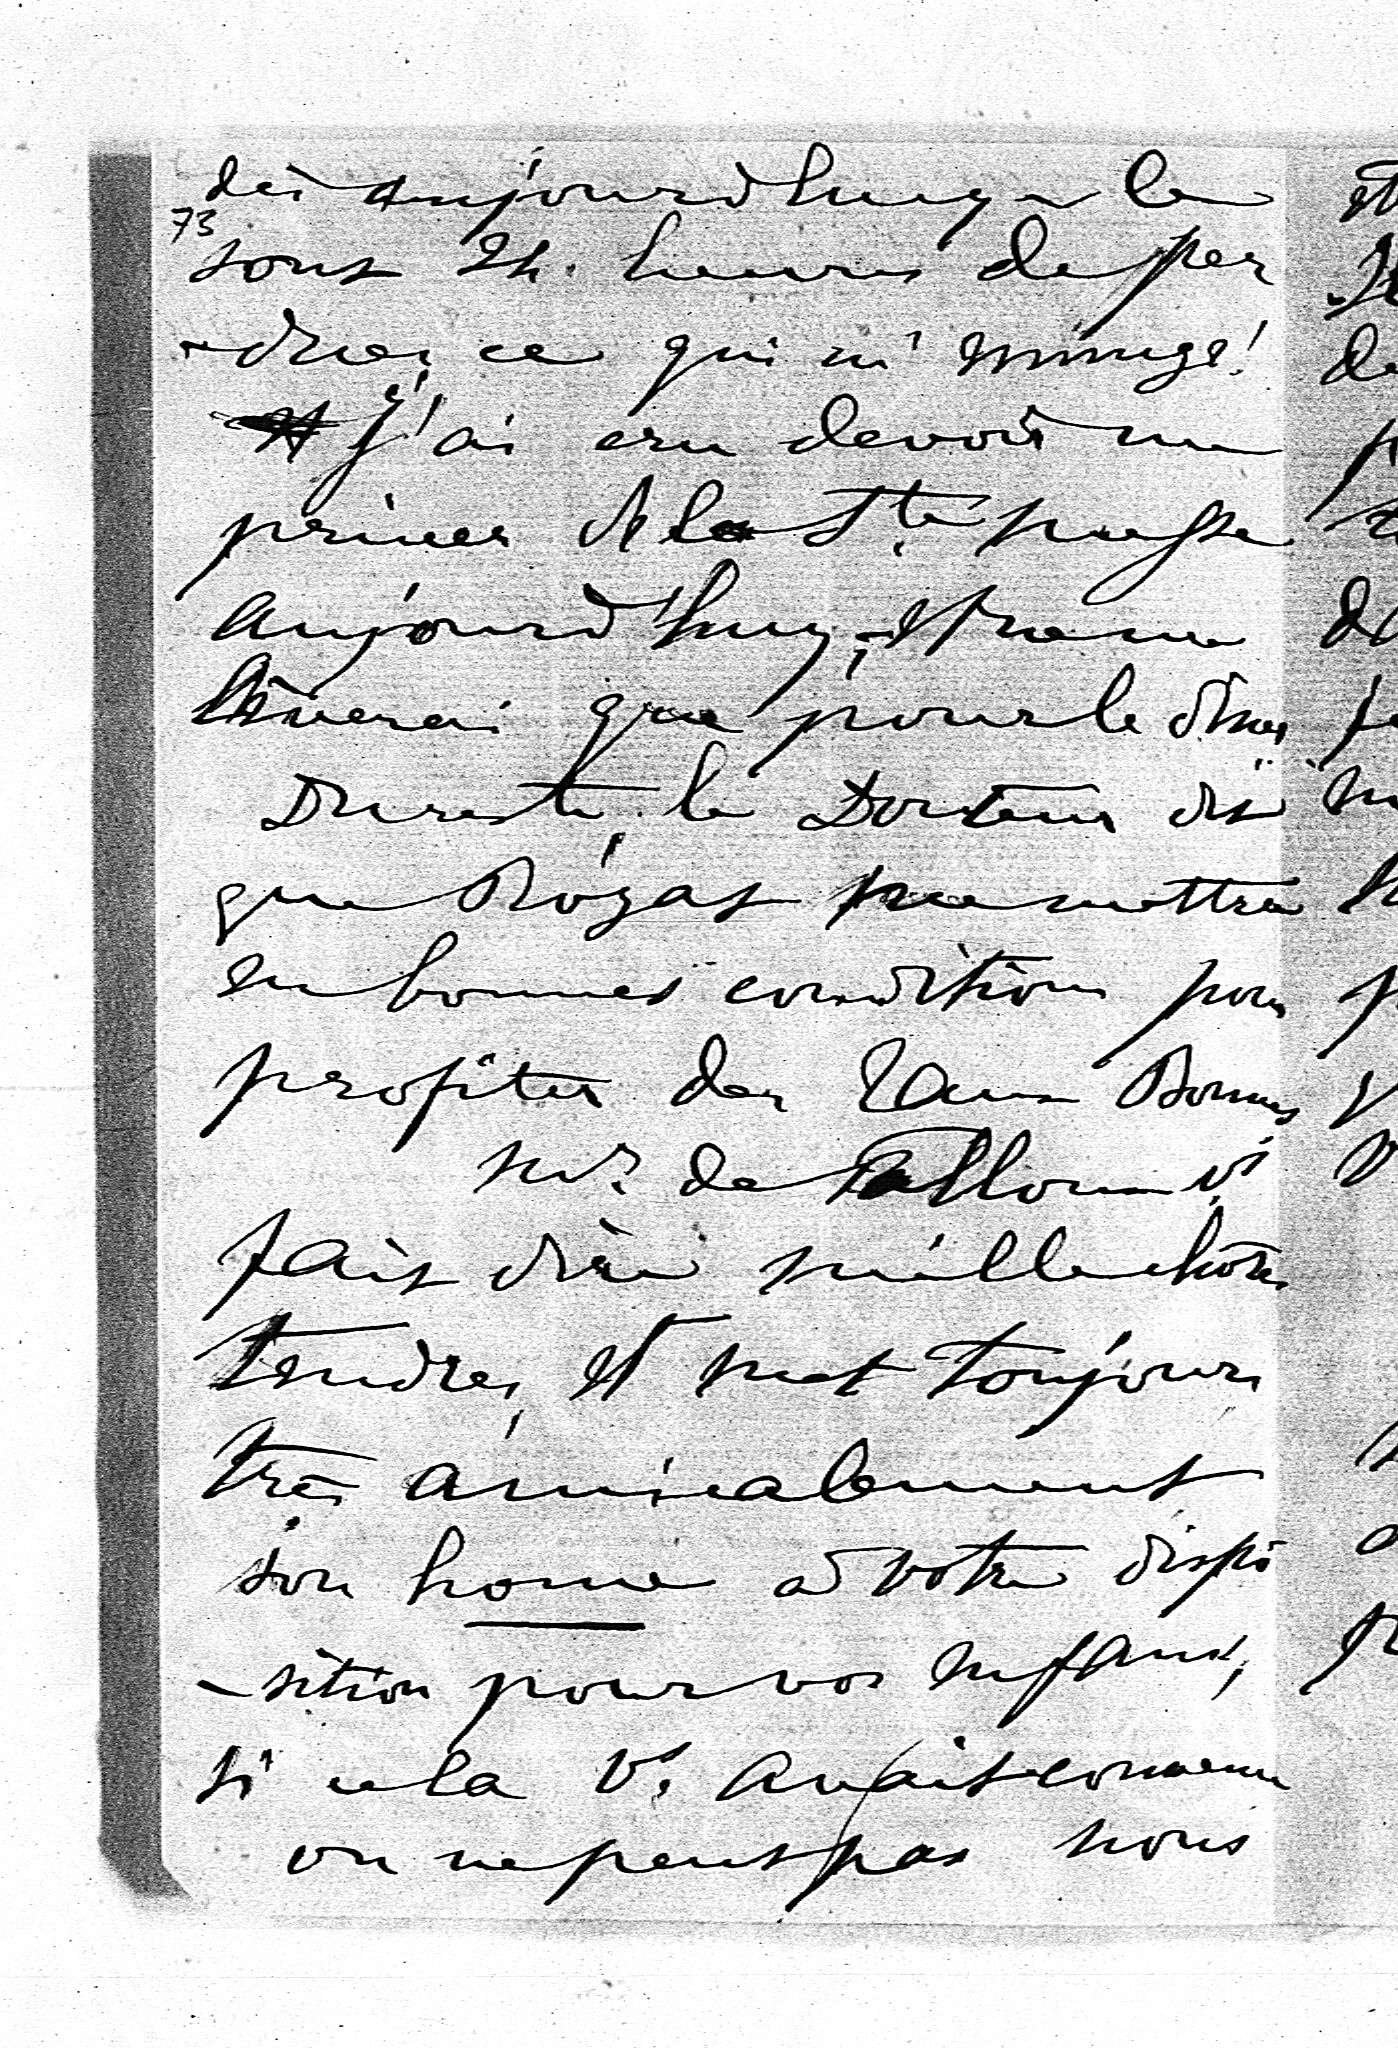 dès aujourd'huy ce
73
sont 24. heures de per
-dues, ce qui m'
J'ai cru devoir me
priver de la Ste messe
aujourd'huy, et ne me
lèverai que pour le diner
Du reste, le Docteur dit
que Royat me mettra
en bonnes conditions pour
profiter des Eaux Bonnes
Mr. de Falloux vs
fait dire mille choses
tendres, et met toujours
très amicalement
son home à votre dispo
-sition pour vos enfants,
si cela vs. avait convenu
on ne peut pas nous